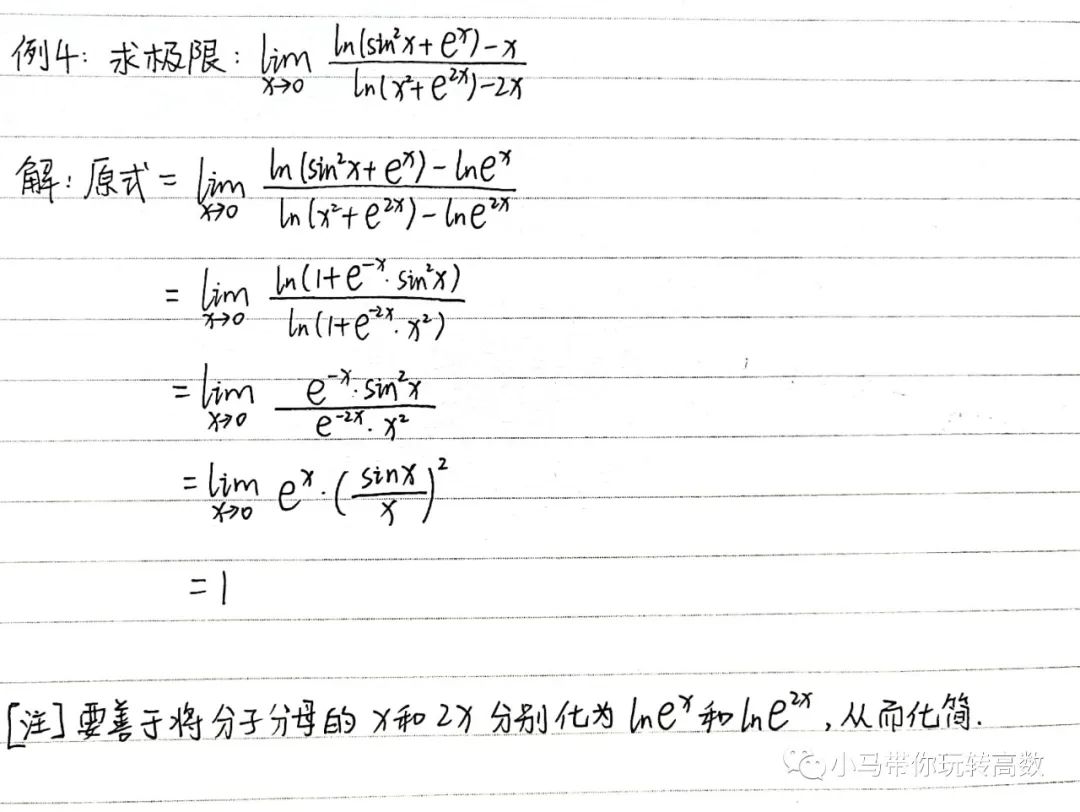 例4: 求极限: lim_{x→0} \frac{ln(sin²x+e^x)-x}{ln(x²+e^{2x})-2x}
解: 原式 = lim_{x→0} \frac{ln(sin²x+e^x)-lne^x}{ln(x²+e^{2x})-lne^{2x}}
= lim_{x→0} \frac{ln(1+e^{-x}·sin²x)}{ln(1+e^{-2x}·x²)}
= lim_{x→0} \frac{e^{-x}·sin²x}{e^{-2x}·x²}
= lim_{x→0} e^x·(\frac{sinx}{x})²
= 1
[注] 要善于将分子分母的 x 和 2x 分别化为 lne^x 和 lne^{2x}, 从而化简.
小马带你玩转高数